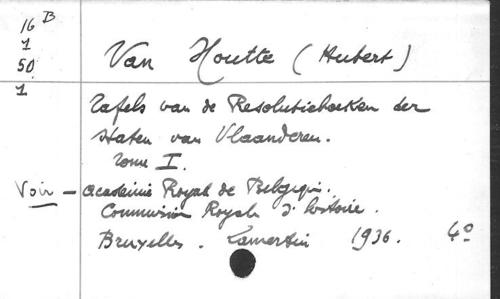 16 B
1
50
1
Van Houtte (Hubert)
Tafels van de Resolutieboeken der
Staten van Vlaanderen.
Tome I.
Voir - Académie Royale de Belgique.
Commission Royale d'histoire.
Bruxelles. Lamertin 1936. 4°